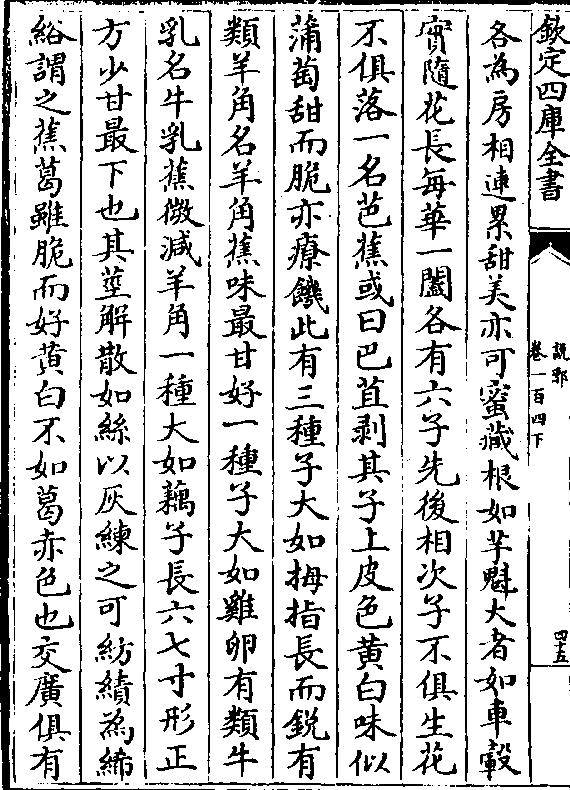 欽定四庫全書
說郛
卷一百四下
四十五
各為房相連累甜美亦可蜜藏根如芋魁大者如車轂
實隨花長每華一闔各有六子先後相次子不俱生花
不俱落一名芭蕉或曰巴苴剥其子上皮色黄白味似
蒲萄甜而脆亦療饑此有三種子大如拇指長而銳有
類羊角名羊角蕉味最甘好一種子大如雞卵有類牛
乳名牛乳蕉微减羊角一種大如藕子長六七寸形正
方少甘最下也其莖解散如絲以灰練之可紡績為絺
綌謂之蕉葛雖脆而好黄白不如葛赤色也交廣俱有